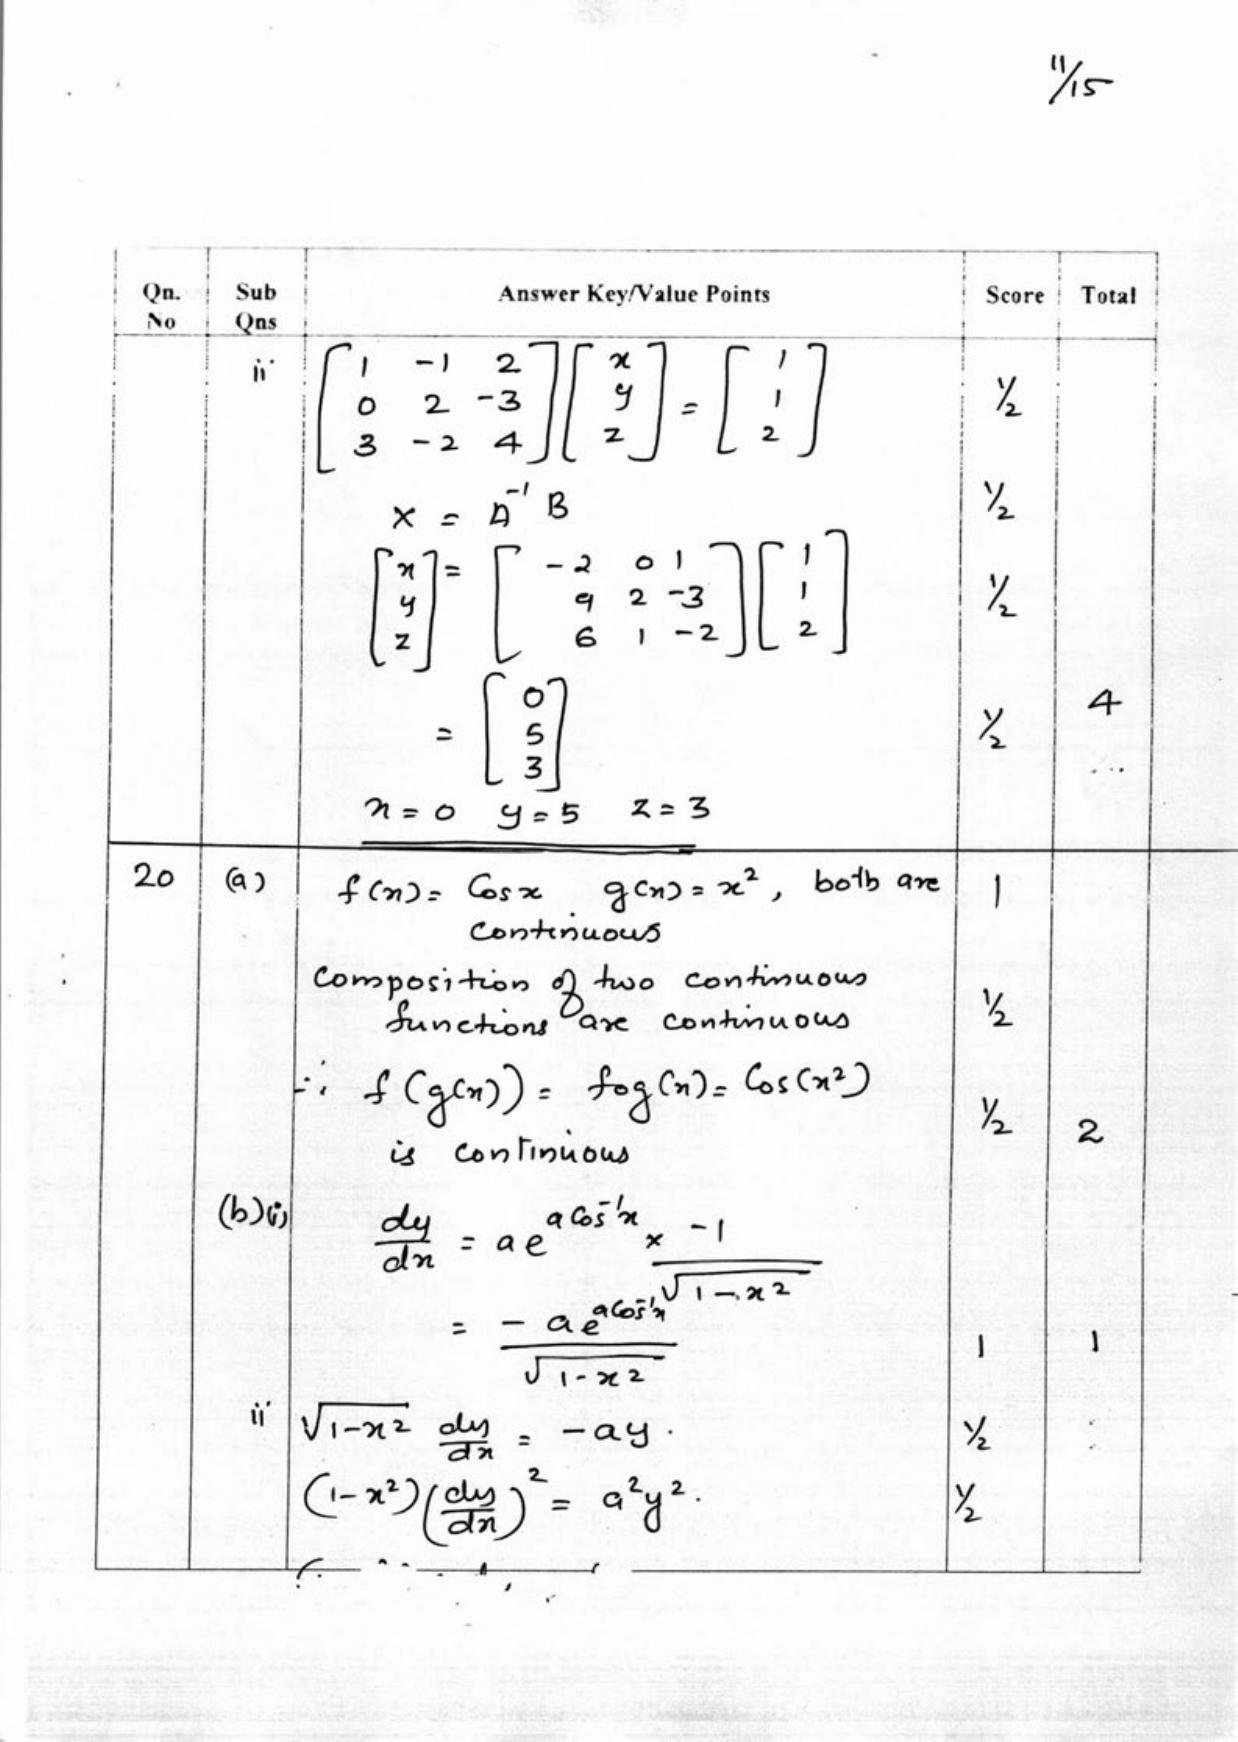 11/15
Qn. No Sub Qns Answer Key/Value Points Score Total
ii [1 -1 2; 0 2 -3; 3 -2 4] [x; y; z] = [1; 1; 2] 1/2
X = A⁻¹ B 1/2
[x; y; z] = [-2 0 1; 9 2 -3; 6 1 -2] [1; 1; 2] 1/2
= [0; 5; 3] 1/2 4
x = 0 y = 5 z = 3
20 (a) f(x) = Cos x g(x) = x², both are 1
continuous
composition of two continuous
functions are continuous 1/2
∴ f(g(x)) = fog(x) = Cos(x²)
is continuous 1/2 2
(b)(i) dy/dx = a e^(a Cos⁻¹x) × -1/√(1-x²)
= -a e^(a Cos⁻¹x)/√(1-x²) 1 1
ii √(1-x²) dy/dx = -ay. 1/2
(1-x²)(dy/dx)² = a²y². 1/2